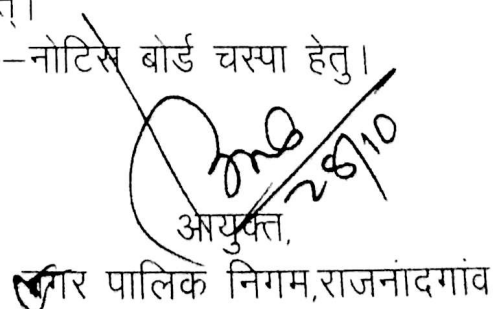 –नोटिस बोर्ड चस्पा हेतु।
28/10
आयुक्त,
नगर पालिक निगम,राजनांदगांव